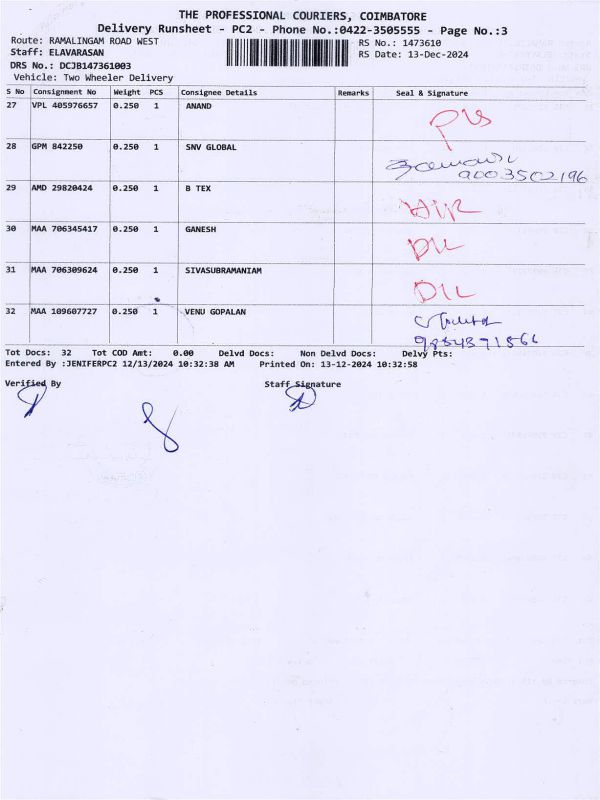 THE PROFESSIONAL COURIERS, COIMBATORE
Delivery Runsheet - PC2 - Phone No.:0422-3505555 - Page No.:3
Route: RAMALINGAM ROAD WEST RS No.: 1473610
Staff: ELAVARASAN RS Date: 13-Dec-2024
DRS No.: DCJB147361003
Vehicle: Two Wheeler Delivery
S No Consignment No Weight PCS Consignee Details Remarks Seal & Signature
27 VPL 405976657 0.250 1 ANAND
28 GPM 842250 0.250 1 SNV GLOBAL
9003502196
29 AMD 29820424 0.250 1 B TEX
30 MAA 706345417 0.250 1 GANESH DIL
31 MAA 706309624 0.250 1 SIVASUBRAMANIAM DIL
32 MAA 109607727 0.250 1 VENU GOPALAN
Tot Docs: 32 Tot COD Amt: 0.00 Delvd Docs: Non Delvd Docs: Delvy Pts:
Entered By :JENIFERPC2 12/13/2024 10:32:38 AM Printed On: 13-12-2024 10:32:58
Verified By Staff Signature